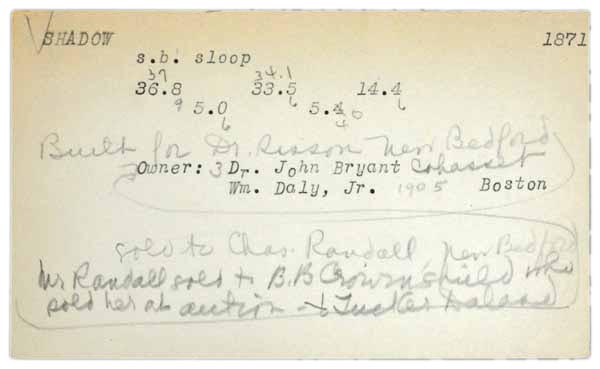 √SHADOW 1871
s.b. sloop
37 34.1
36.8 33.5 14.4
9 5.0 6 5.4 0 6
6 40
Built for Dr. Sisson New Bedford
Owner: 3 Dr. John Bryant Cohasset
2 Wm. Daly, Jr. 1905 Boston
sold to Chas. Randall New Bedford
Mr Randall sold to B.B Crowninshield who
sold her at auction - to Tucker Daland